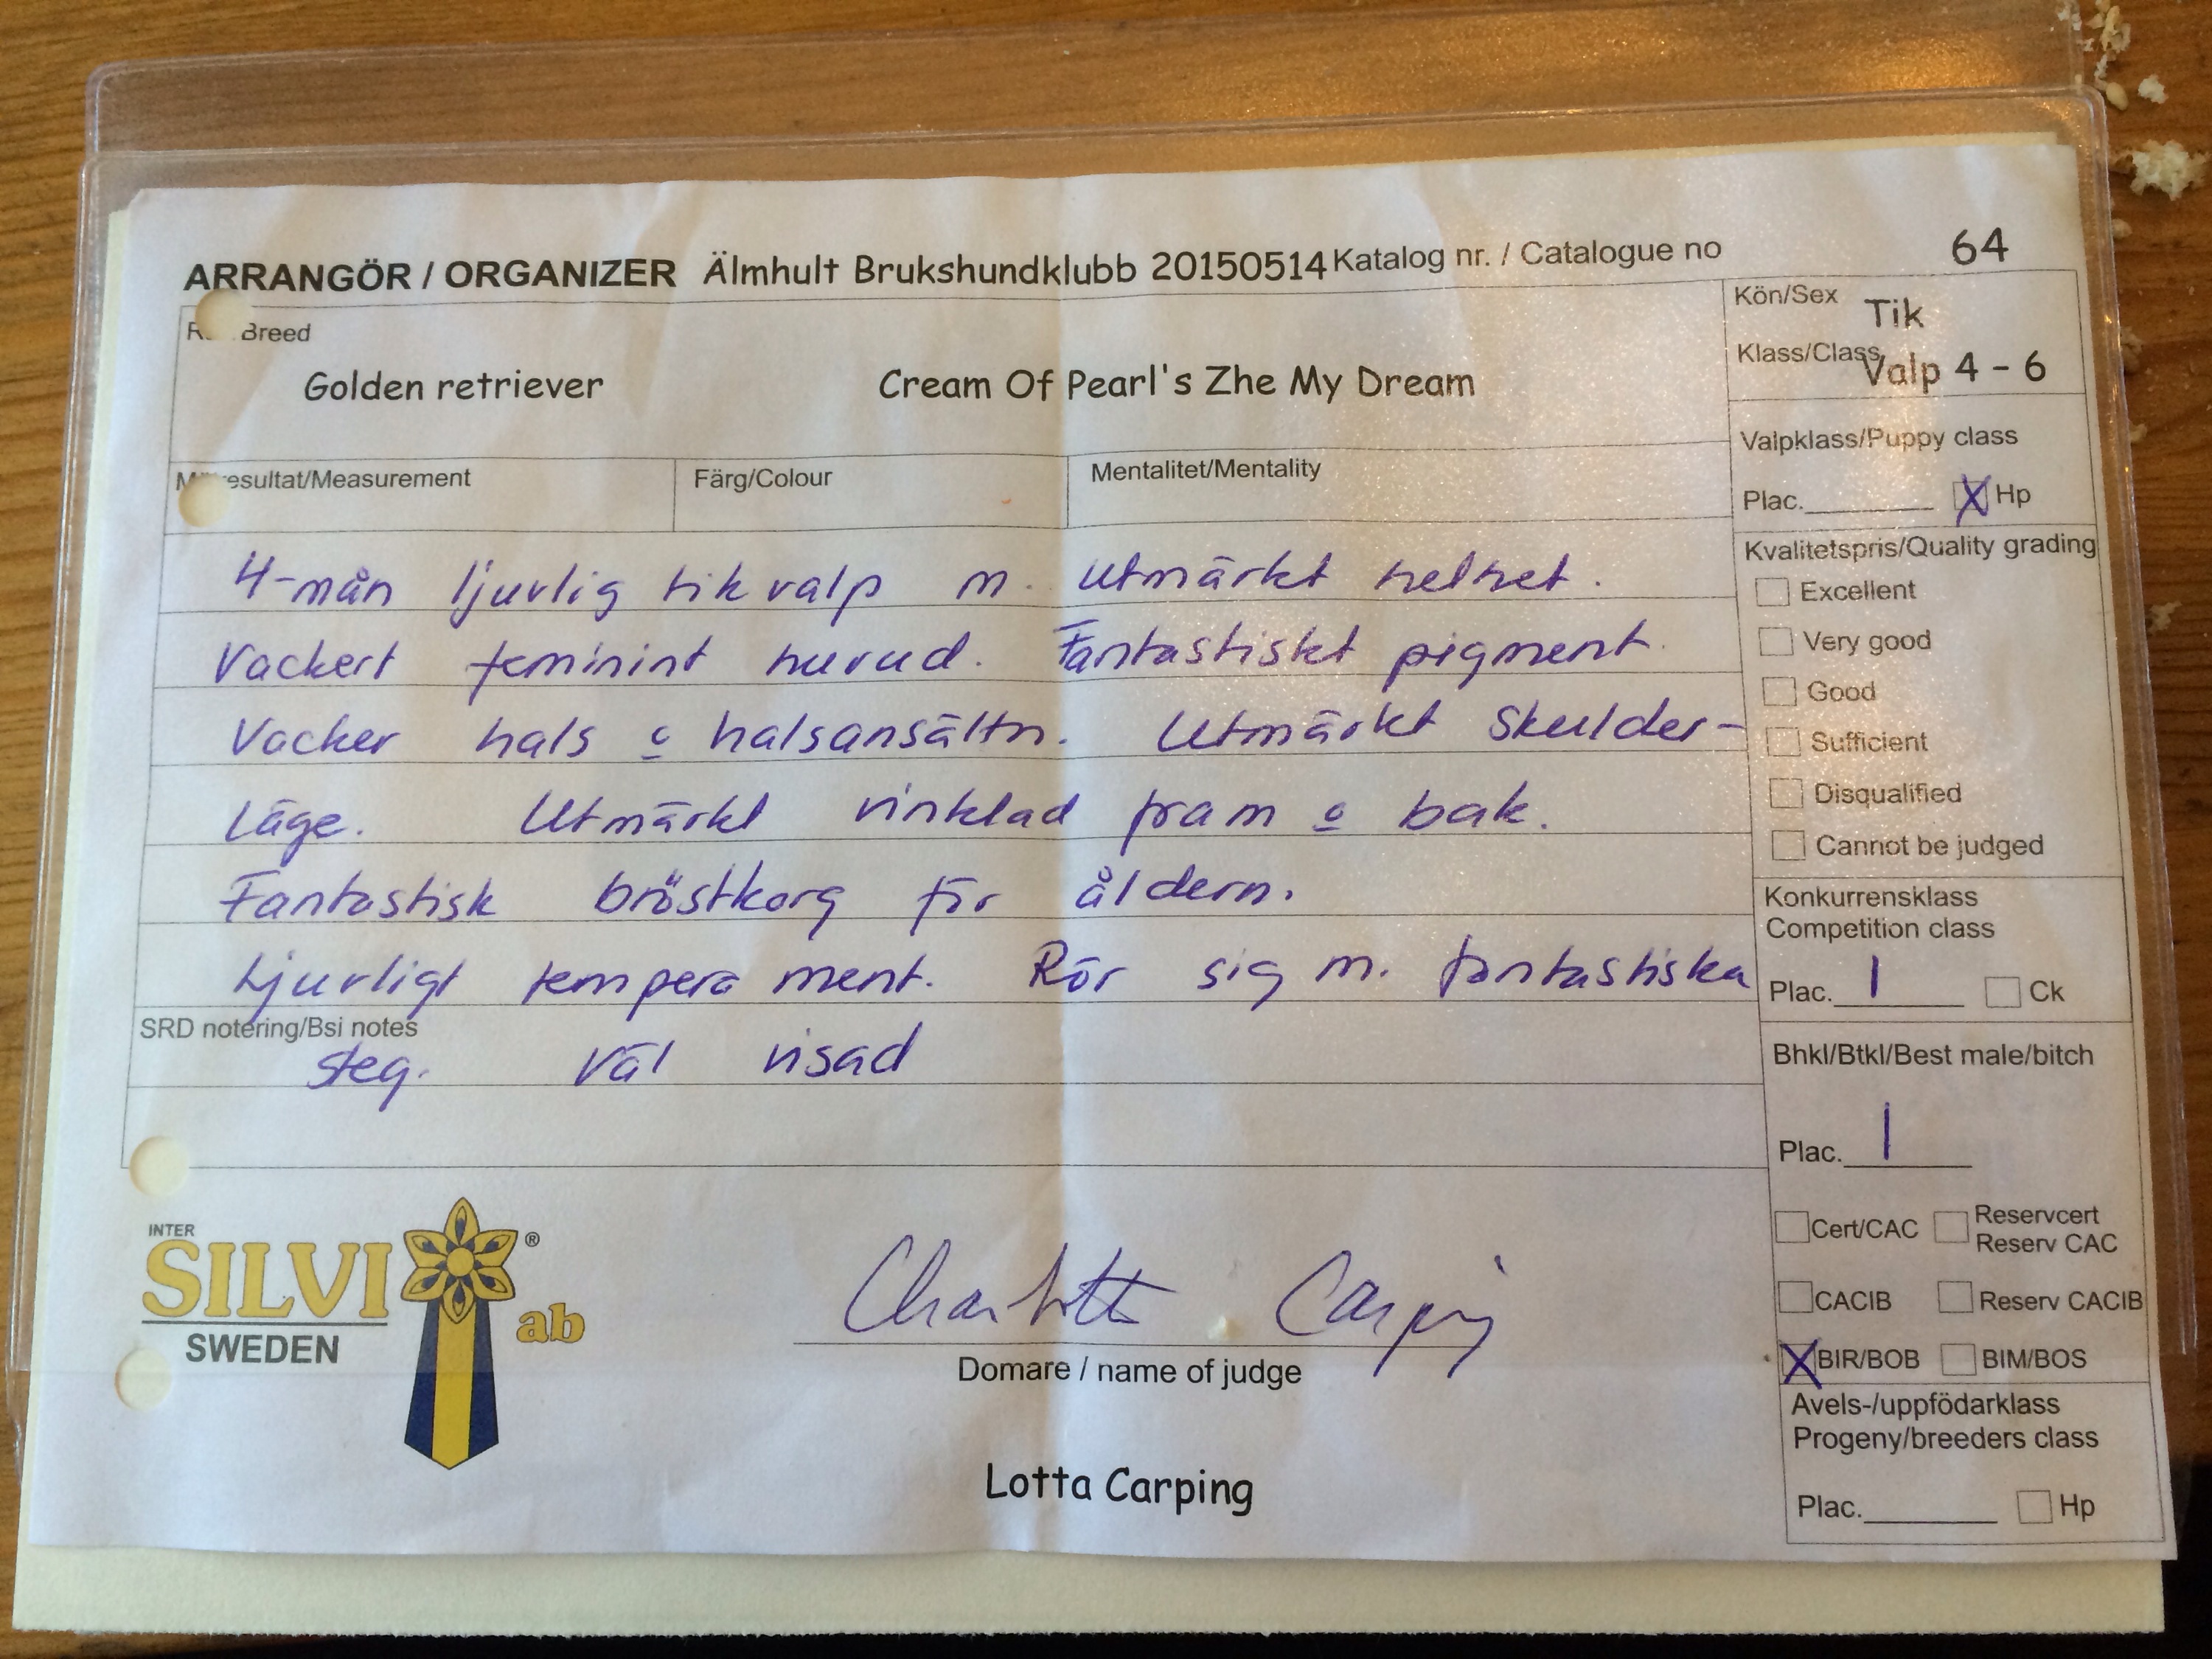 ARRANGÖR / ORGANIZER Älmhult Brukshundklubb 20150514 Katalog nr. / Catalogue no 64
Breed
Golden retriever Cream Of Pearl's Zhe My Dream
Kön/Sex Tik
Klass/Class Valp 4 - 6
Valpklass/Puppy class
Plac. X Hp
resultat/Measurement Färg/Colour Mentalitet/Mentality
4-mån ljuvlig tikvalp m. utmärkt helhet.
Vackert feminint huvud. Fantastiskt pigment.
Vacker hals o halsansättn. Utmärkt skulder-
läge. Utmärkt vinklad fram o bak.
Fantastisk bröstkorg för åldern.
Ljuvligt temperament. Rör sig m. fantastiska
SRD notering/Bsi notes
steg. Väl visad
Kvalitetspris/Quality grading
Excellent
Very good
Good
Sufficient
Disqualified
Cannot be judged
Konkurrensklass
Competition class
Plac. 1 Ck
Bhkl/Btkl/Best male/bitch
Plac. 1
Cert/CAC Reservcert
Reserv CAC
CACIB Reserv CACIB
X BIR/BOB BIM/BOS
Avels-/uppfödarklass
Progeny/breeders class
Plac. Hp
INTER
SILVI ®
ab
SWEDEN
Charlotte Carping
Domare / name of judge
Lotta Carping